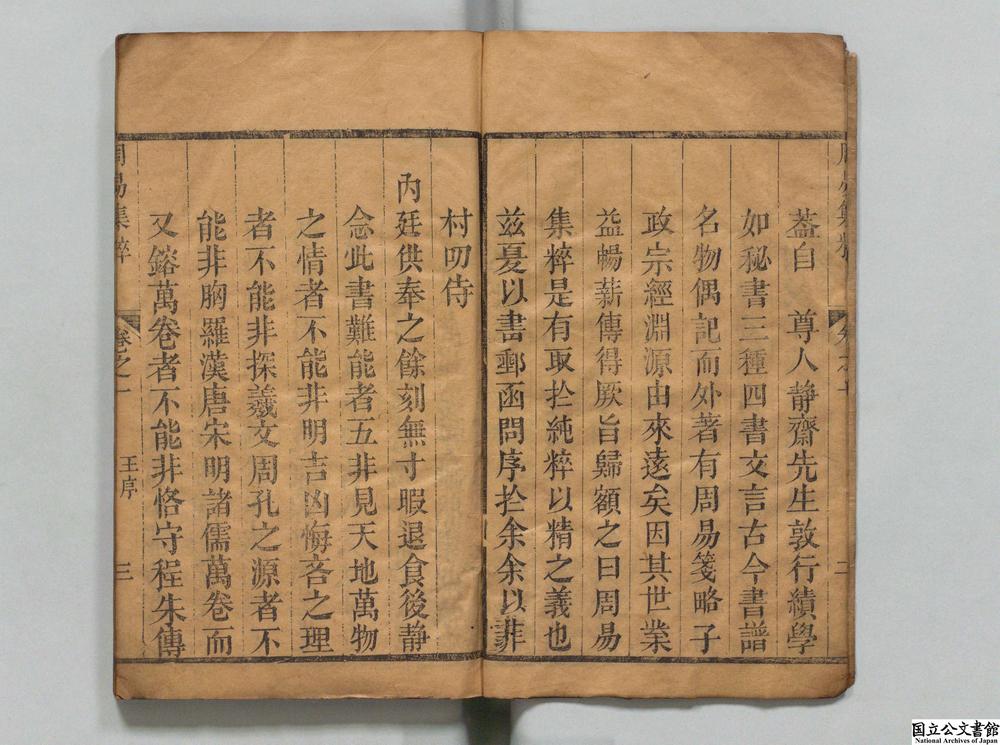 蓋自　尊人靜齋先生敦行績學
如秘書三種四書文言古今書譜
名物偶記而外著有周易箋略子
政宗經淵源由來遠矣因其世業
益暢薪傳得厥旨歸額之曰周易
集粹是有取扵純粹以精之義也
兹夏以書郵函問序扵余余以菲
村叨侍
內廷供奉之餘刻無寸暇退食後靜
念此書難能者五非見天地萬物
之情者不能非明吉凶悔吝之理
者不能非探羲文周孔之源者不
能非胸羅漢唐宋明諸儒萬卷而
又鎔萬卷者不能非恪守程朱傳
周易集粹
卷之一
王序
三
国立公文書館
National Archives of Japan